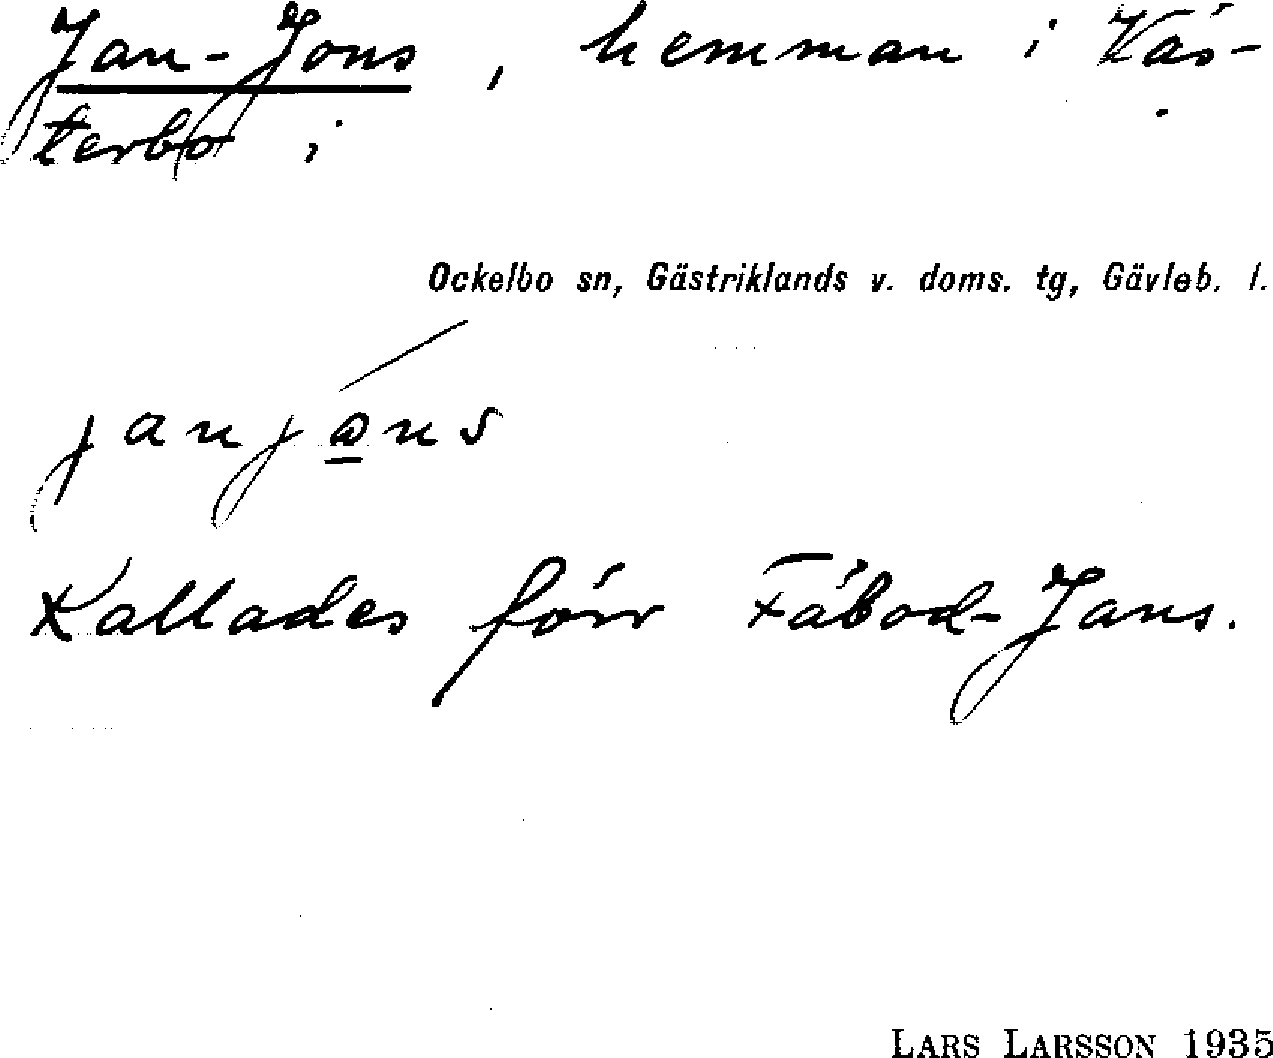 Jan-Jons, hemman i Väs-
terbo i
Ockelbo sn, Gästriklands v. doms. tg, Gävleb. l.
Kallades förr Fäbod-Jans.
LARS LARSSON 1935